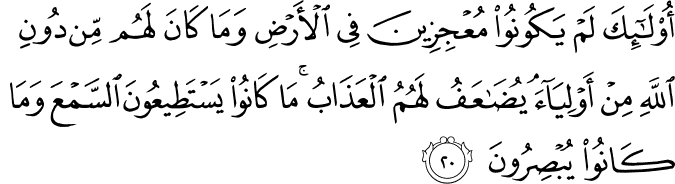 أُو۟لَـٰٓئِكَ لَمْ يَكُونُوا۟ مُعْجِزِينَ فِى ٱلْأَرْضِ وَمَا كَانَ لَهُم مِّن دُونِ
ٱللَّهِ مِنْ أَوْلِيَآءَ ۘ يُضَـٰعَفُ لَهُمُ ٱلْعَذَابُ ۚ مَا كَانُوا۟ يَسْتَطِيعُونَ ٱلسَّمْعَ وَمَا
كَانُوا۟ يُبْصِرُونَ ٢٠